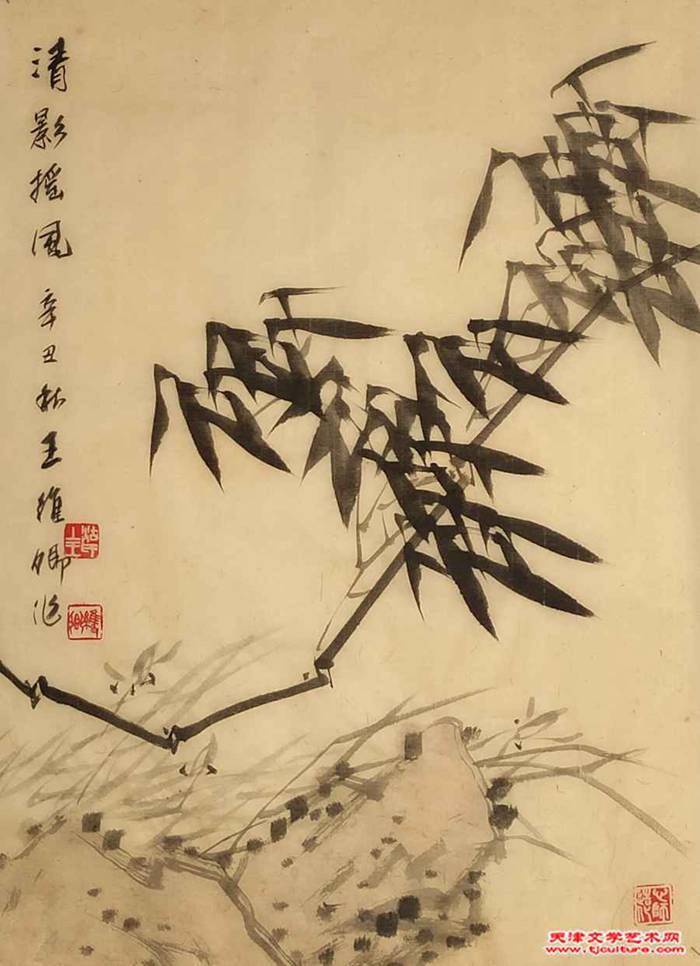 清影摇风 辛丑秋 王维卿作
天津文学艺术网
www.tjculture.com